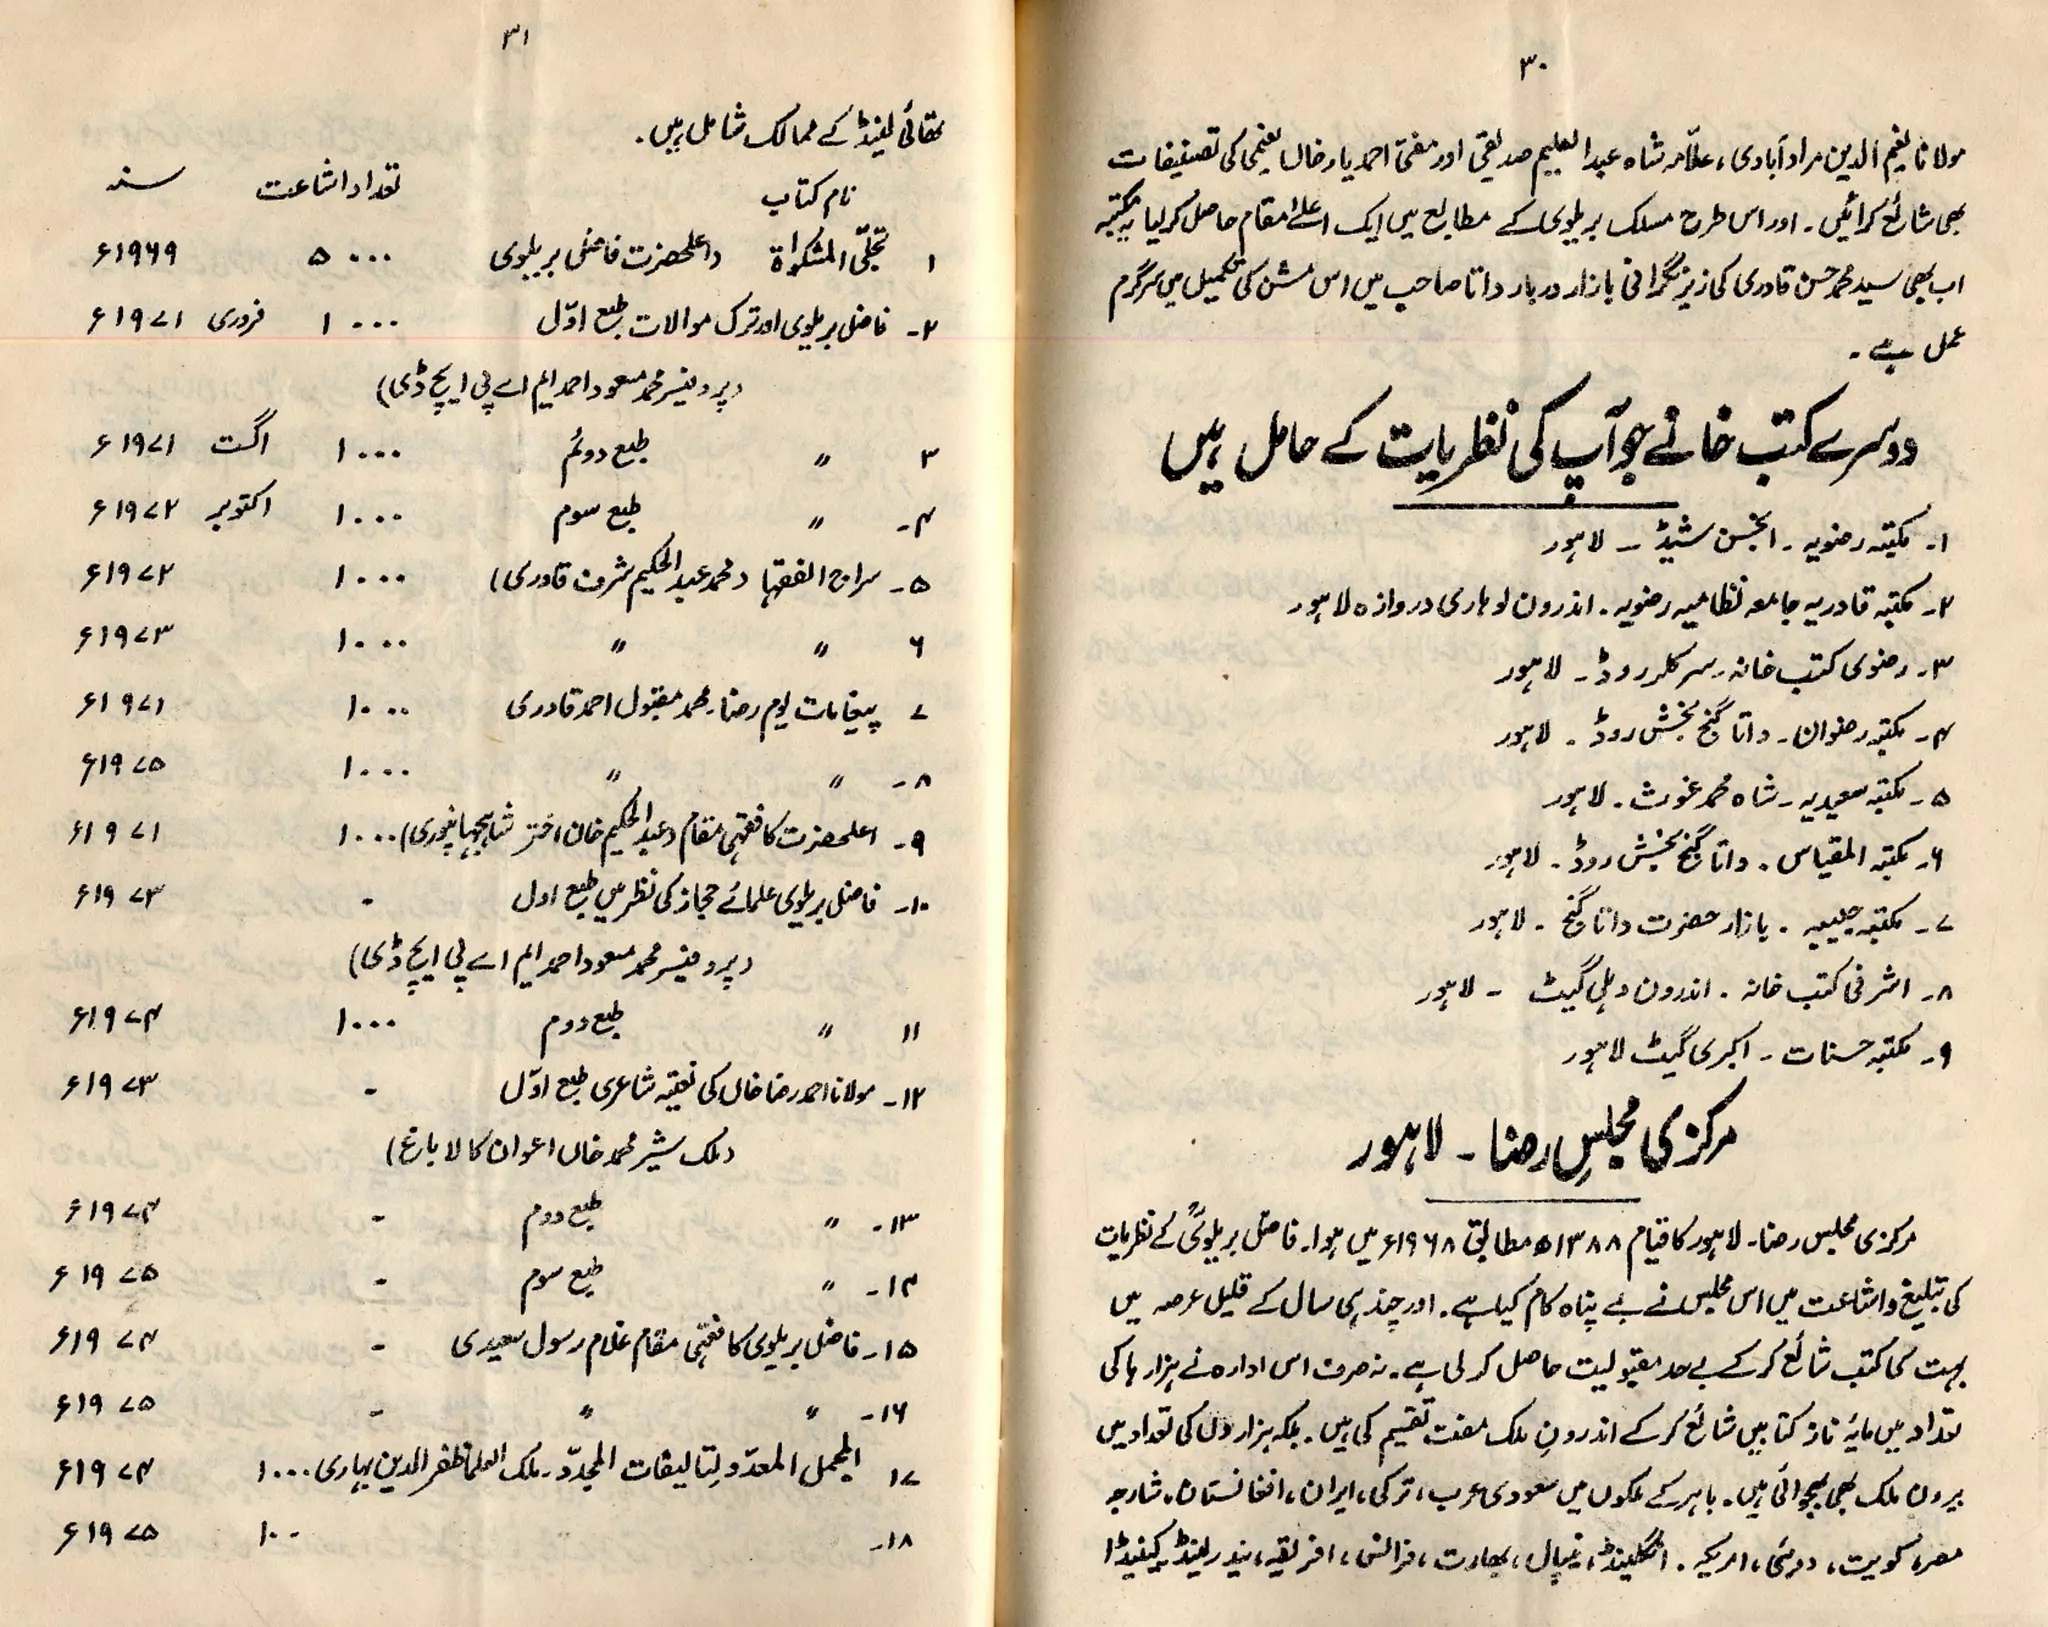 ۳۰
مولانا نعیم الدین مراد آبادی، علّامہ شاہ عبدالعلیم صدیقی اور مفتی احمد یار خاں نعیمی کی تصنیفات
بھی شائع کرائیں۔ اور اس طرح مسلک بریلوی کے مطابع میں ایک اعلےٰ مقام حاصل کر لیا یہ مکتبہ
اب بھی سید محمد حسن قادری کی زیر نگرانی بازار دربار داتا صاحب میں اس مشن کی تکمیل میں سرگرم
عمل ہے۔
دوسرے کتب خانے جو آپ کی نظریات کے حامل ہیں
۱۔ مکتبہ رضویہ۔ انجن شیڈ ۔ لاہور
۲۔ مکتبہ قادریہ جامعہ نظامیہ رضویہ۔ اندرون لوہاری دروازہ لاہور
۳۔ رضوی کتب خانہ۔ سرکلر روڈ۔ لاہور
۴۔ مکتبہ رضوان۔ داتا گنج بخش روڈ ۔ لاہور
۵۔ مکتبہ سعیدیہ۔ شاہ محمد غوث۔ لاہور
۶۔ مکتبہ المقیاس۔ داتا گنج بخش روڈ۔ لاہور
۷۔ مکتبہ حبیبیہ ۔ بازار حضرت داتا گنج ۔ لاہور
۸۔ اشرفی کتب خانہ ۔ اندرون دہلی گیٹ ۔ لاہور
۹۔ مکتبہ حسنات ۔ اکبری گیٹ لاہور
مرکزی مجلسِ رضا۔ لاہور
مرکزی مجلس رضا۔ لاہور کا قیام ۱۳۸۸ھ مطابق ۱۹۶۸ء میں ہوا۔ فاضل بریلویؒ کے نظریات
کی تبلیغ و اشاعت میں اس مجلس نے بے پناہ کام کیا ہے۔ اور چند ہی سال کے قلیل عرصہ میں
بہت سی کتب شائع کر کے بے حد مقبولیت حاصل کر لی ہے۔ نہ صرف اس ادارہ نے ہزار ہا کی
تعداد میں مایۂ ناز کتابیں شائع کر کے اندرونِ ملک مفت تقسیم کی ہیں۔ بلکہ ہزاروں کی تعداد میں
بیرون ملک بھی بھجوائی ہیں۔ باہر کے ملکوں میں سعودی عرب، ترکی، ایران، افغانستان، شارجہ
مصر، کویت، دوبئی، امریکہ۔ انگلینڈ، نیپال، بھارت، فرانس، افریقہ، ہندر لینڈ، کینیڈا
۳۱
تھائی لینڈ کے ممالک شامل ہیں۔
نام کتاب تعداد اشاعت سنہ
۱ تجلّی المشکوٰۃ (اعلحضرت فاضل بریلوی ۵۰۰۰ ۱۹۶۹ء
۲۔ فاضل بریلوی اور ترک موالات طبع اوّل ۱۰۰۰ فروری ۱۹۷۱ء
(پروفیسر محمد مسعود احمد ایم اے پی ایچ ڈی)
۳ " طبع دوئم ۱۰۰۰ اگست ۱۹۷۱ء
۴۔ " طبع سوم ۱۰۰۰ اکتوبر ۱۹۷۲ء
۵۔ سراج الفقہا (محمد عبدالحکیم شرف قادری) ۱۰۰۰ ۱۹۷۲ء
۶ " " ۱۰۰۰ ۱۹۷۳ء
۷ پیغامات یوم رضا۔ محمد مقبول احمد قادری ۱۰۰۰ ۱۹۷۱ء
۸۔ " " ۱۰۰۰ ۱۹۷۵ء
۹۔ اعلحضرت کا فقہی مقام (عبدالحکیم خان اختر شاہجہانپوری) ۱۰۰۰ ۱۹۷۱ء
۱۰۔ فاضل بریلوی علمائے حجاز کی نظر میں طبع اول - ۱۹۷۳ء
(پروفیسر محمد مسعود احمد ایم اے پی ایچ ڈی)
۱۱ " طبع دوم ۱۰۰۰ ۱۹۷۴ء
۱۲۔ مولانا احمد رضا خاں کی نعتیہ شاعری طبع اوّل - ۱۹۷۳ء
(ملک شیر محمد خاں اعوان کالا باغ)
۱۳۔ " طبع دوم - ۱۹۷۴ء
۱۴۔ " طبع سوم - ۱۹۷۵ء
۱۵۔ فاضل بریلوی کا فقہی مقام غلام رسول سعیدی - ۱۹۷۴ء
۱۶۔ " " - ۱۹۷۵ء
۱۷ المجمل المعدّد لتالیفات المجدّد۔ ملک العلما ظفر الدین بہاری ۱۰۰۰ ۱۹۷۴ء
۱۸۔ ۱۰۰ ۱۹۷۵ء